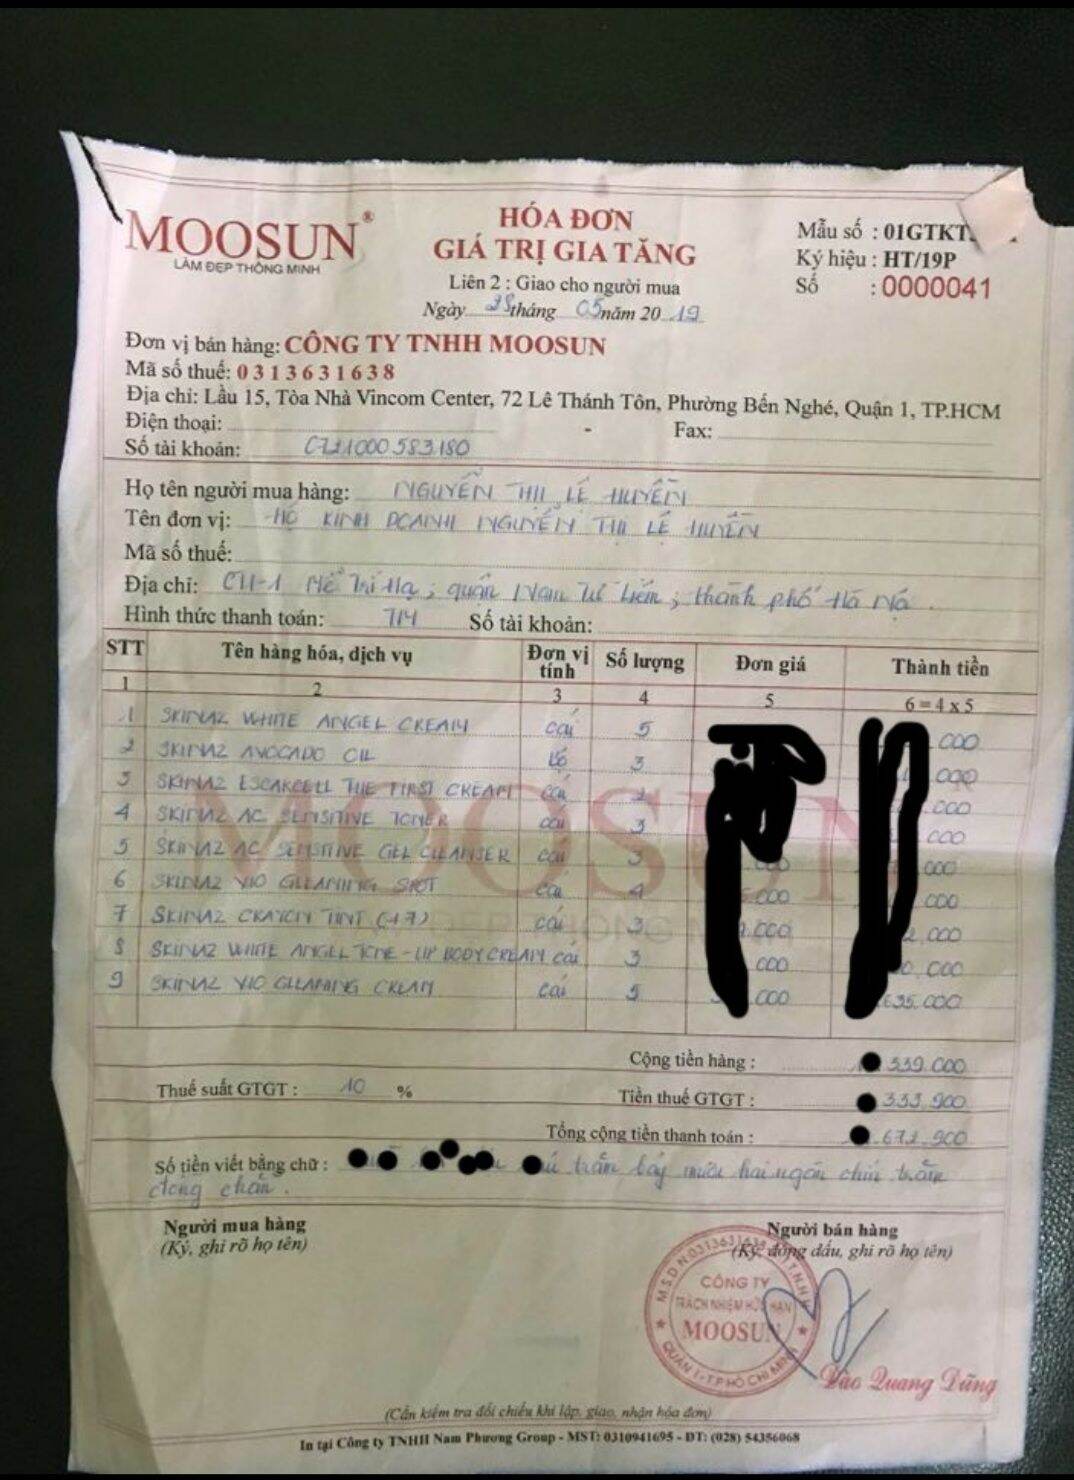 MOOSUN®
LÀM ĐẸP THÔNG MINH
HÓA ĐƠN
GIÁ TRỊ GIA TĂNG
Liên 2 : Giao cho người mua
Ngày 28 tháng 05 năm 20 19
Mẫu số : 01GTKT
Ký hiệu : HT/19P
Số : 0000041
Đơn vị bán hàng: CÔNG TY TNHH MOOSUN
Mã số thuế: 0313631638
Địa chỉ: Lầu 15, Tòa Nhà Vincom Center, 72 Lê Thánh Tôn, Phường Bến Nghé, Quận 1, TP.HCM
Điện thoại: - Fax:
Số tài khoản: 0721000583180
Họ tên người mua hàng: NGUYỄN THỊ LỆ HUYỀN
Tên đơn vị: HỘ KINH DOANH NGUYỄN THỊ LỆ HUYỀN
Mã số thuế:
Địa chỉ: CT1-1 Mễ Trì Hạ, quận Nam Từ Liêm, thành phố Hà Nội.
Hình thức thanh toán: TM Số tài khoản:
STT Tên hàng hóa, dịch vụ Đơn vị tính Số lượng Đơn giá Thành tiền
1 2 3 4 5 6 = 4 x 5
1 SKINAZ WHITE ANGEL CREAM cái 5 .000
2 SKINAZ AVOCADO OIL lọ 3 .000
3 SKINAZ ESCARCELL THE FIRST CREAM cái 2 .000
4 SKINAZ AC SENSITIVE TONER cái 3 .000
5 SKINAZ AC SENSITIVE GEL CLEANSER cái 3 .000 .000
6 SKINAZ VIO GLEAMING SPOT cái 4 .000 .000
7 SKINAZ CRAYON TINT (47) cái 3 .000 .000
8 SKINAZ WHITE ANGEL TONE-UP BODY CREAM cái 3 .000 .000
9 SKINAZ VIO GLEAMING CREAM cái 5 .000 .635.000
Cộng tiền hàng : 339.000
Thuế suất GTGT : 10 % Tiền thuế GTGT : 333.900
Tổng cộng tiền thanh toán : .672.900
Số tiền viết bằng chữ : trăm bảy mươi hai ngàn chín trăm
đồng chẵn.
Người mua hàng
(Ký, ghi rõ họ tên)
Người bán hàng
(Ký, đóng dấu, ghi rõ họ tên)
M.S.D.N:0313631638
CÔNG TY
TRÁCH NHIỆM HỮU HẠN
MOOSUN
QUẬN 1 - T.P HỒ CHÍ MINH
Đào Quang Dũng
(Cần kiểm tra đối chiếu khi lập, giao, nhận hóa đơn)
In tại Công ty TNHH Nam Phương Group - MST: 0310941695 - ĐT: (028) 54356068